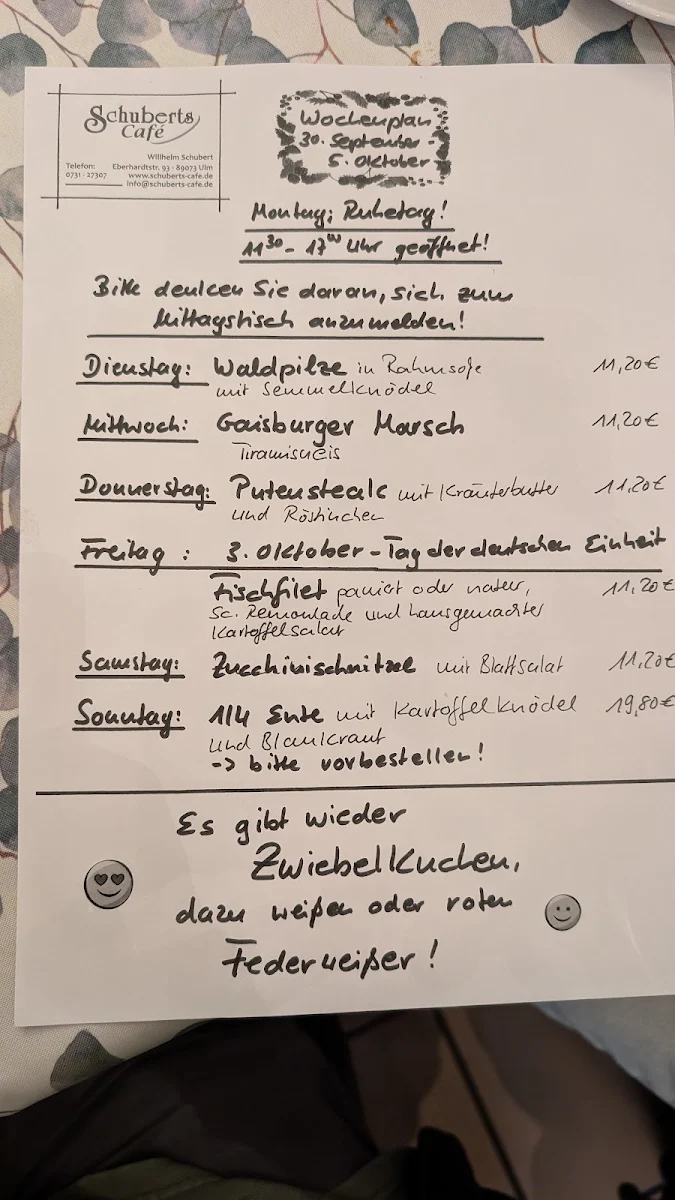 Schuberts
Café
Willhelm Schubert
Telefon: Eberhardtstr. 93 · 89073 Ulm
0731 - 27307 www.schuberts-cafe.de
Info@schuberts-cafe.de
Wochenplan
30. September -
5. Oktober
Montag: Ruhetag!
11³⁰ - 17⁰⁰ Uhr geöffnet!
Bitte denken Sie daran, sich zum
Mittagstisch anzumelden!
Dienstag: Waldpilze in Rahmsoße 11,20€
mit Semmelknödel
Mittwoch: Gaisburger Marsch 11,20€
Tiramisueis
Donnerstag: Putensteak mit Kräuterbutter 11,20€
und Röstinchen
Freitag: 3. Oktober - Tag der deutschen Einheit
Fischfilet paniert oder natur, 11,20€
Sc. Remoulade und hausgemachter
Kartoffelsalat
Samstag: Zucchinischnitzel mit Blattsalat 11,20€
Sonntag: 1/4 Ente mit Kartoffelknödel 19,80€
und Blaukraut
-> bitte vorbestellen!
Es gibt wieder
Zwiebelkuchen,
dazu weißen oder roten
Federweißer!